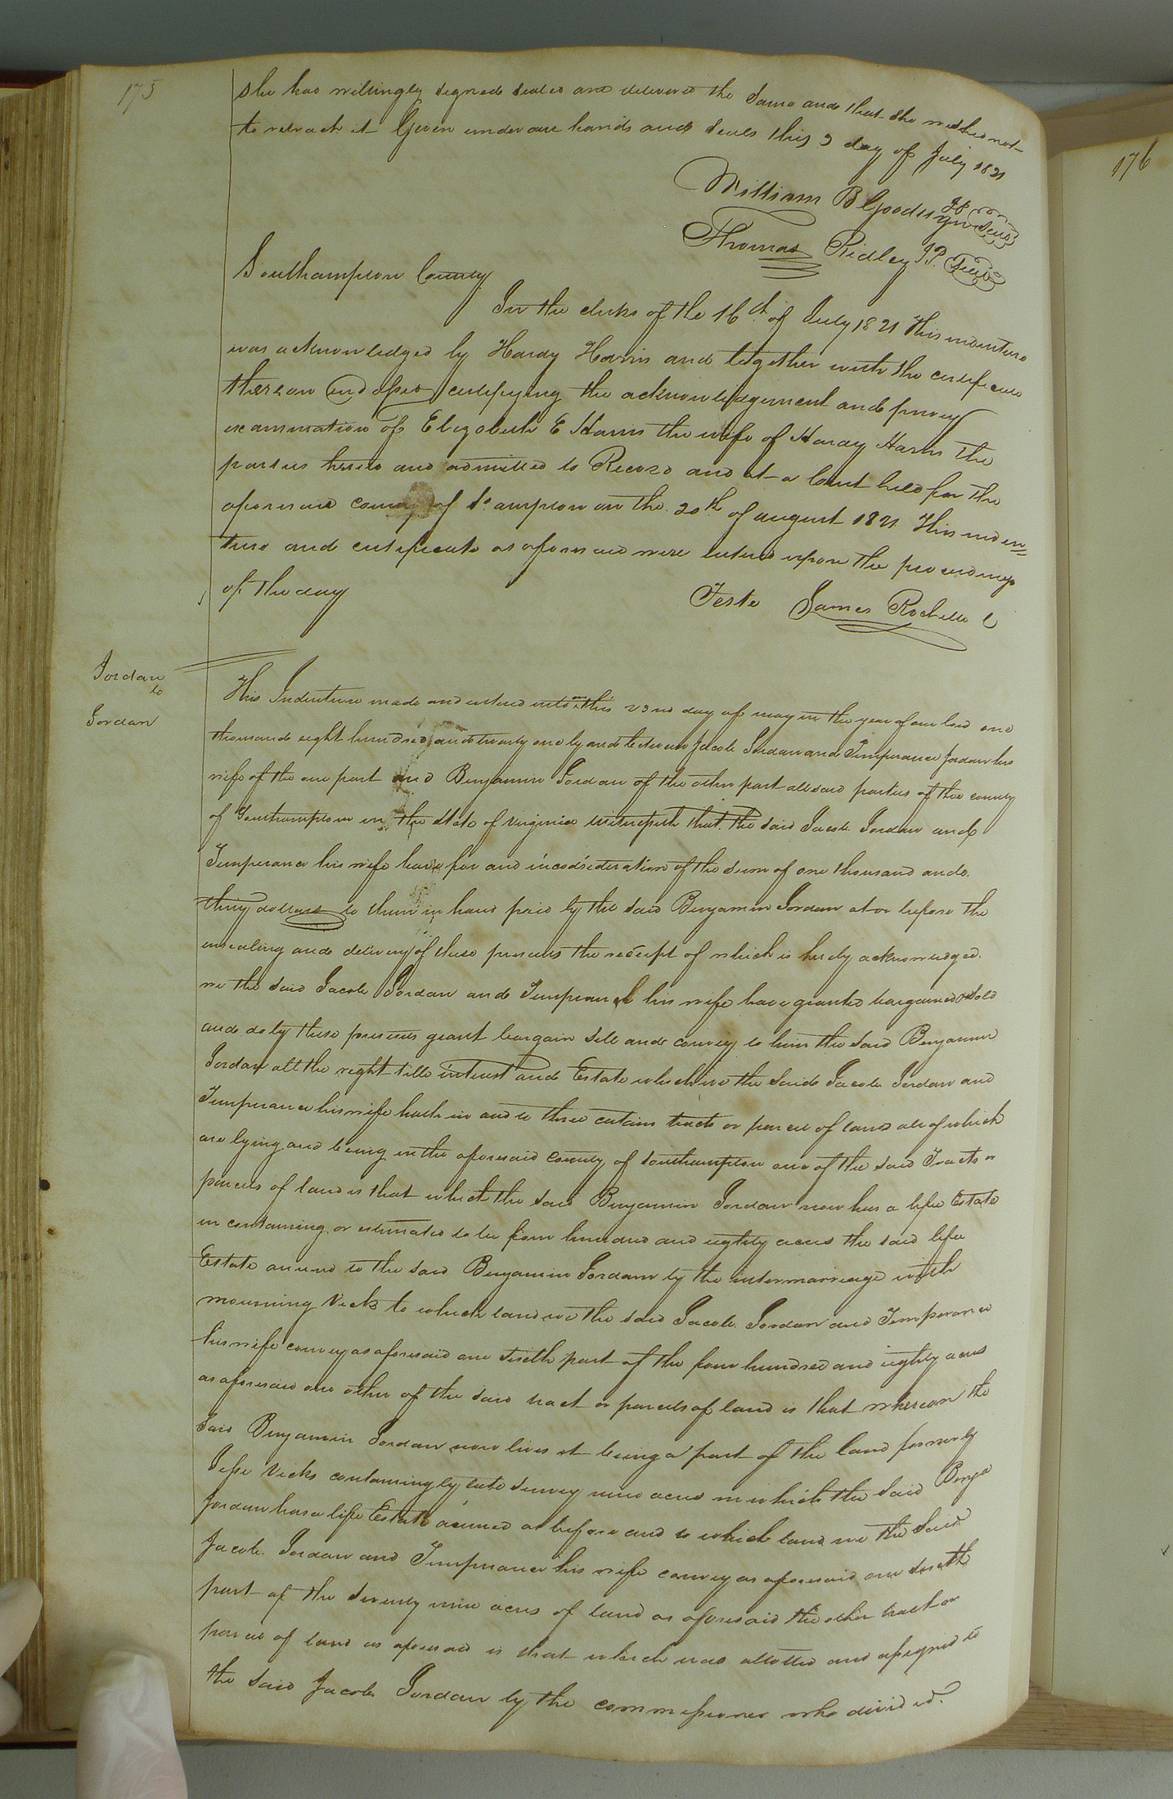 175
she has willingly signed sealed and delivered the same and that she wishes not
to retract it Given under our hands and seals this 9 day of July 1821
William B Goodwyn JP Seal
Thomas Ridley JP. Seal
Southampton County
In the clerks of the 16th of July 1821 This indenture
was acknowledged by Hardy Harris and together with the certificate
thereon endorsed certifying the acknowledgement and privey
examination of Elizabeth E Harris the wife of Hardy Harris the
parties hereto and admitted to Record and at a Court held for the
aforesaid county of So ampton on the 20th of august 1821 This inden=
ture and certificate as aforesaid were entered upon the proceedings
of the day
Teste James Rochelle C
Jordan
to
Jordan
This Indenture made and entered into on this 23nd day of may in the year of our lord one
thousand eight hundred and twenty one by and between Jacob Jordan and Temperance Jordan his
wife of the one part and Benjamin Jordan of the other part all said parties of the county
of Southampton in the State of Virginia Witnesseth that the said Jacob Jordan and
Temperance his wife have for and in cosideration of the sum of one thousand and
thirty dollars to them in hand paid by the said Benjamin Jordan at or before the
ensealing and delivery of these presents the receipt of which is hereby acknowledged.
we the said Jacob Jordan and Temperance his wife have granted bargained & sold
and do by these presents grant bargain sell and convey to him the said Benjamin
Jordan all the right title interest and Estate which we the said Jacob Jordan and
Temperance his wife hath in and to three certain tracts or parcels of land all of which
are lying and being in the aforesaid county of Southampton one of the said Tracts or
parcels of land is that which the said Benjamin Jordan now has a life Estate
in containing or estimated to be four hundred and eighty acres the said life
Estate accrued to the said Benjamin Jordan by the intermarriage with
mourning Vicks to which land we the said Jacob Jordan and Temperance
his wife convey as aforesaid one sixth part of the four hundred and eighty acres
as aforesaid one other of the said tract or parcels of land is that whereon the
said Benjamin Jordan now lives it being a part of the land formerly
Jesse Vicks containing by late Survey nine acres in which the said Benja
Jordan has a life Estate accrued as before and to which land we the said
Jacob Jordan and Temperance his wife convey as aforesaid one sixth
part of the seventy nine acres of land as aforesaid the other tract or
parcel of land as aforesaid is that which was allotted and assigned to
the said Jacob Jordan by the commissioners who divided
176